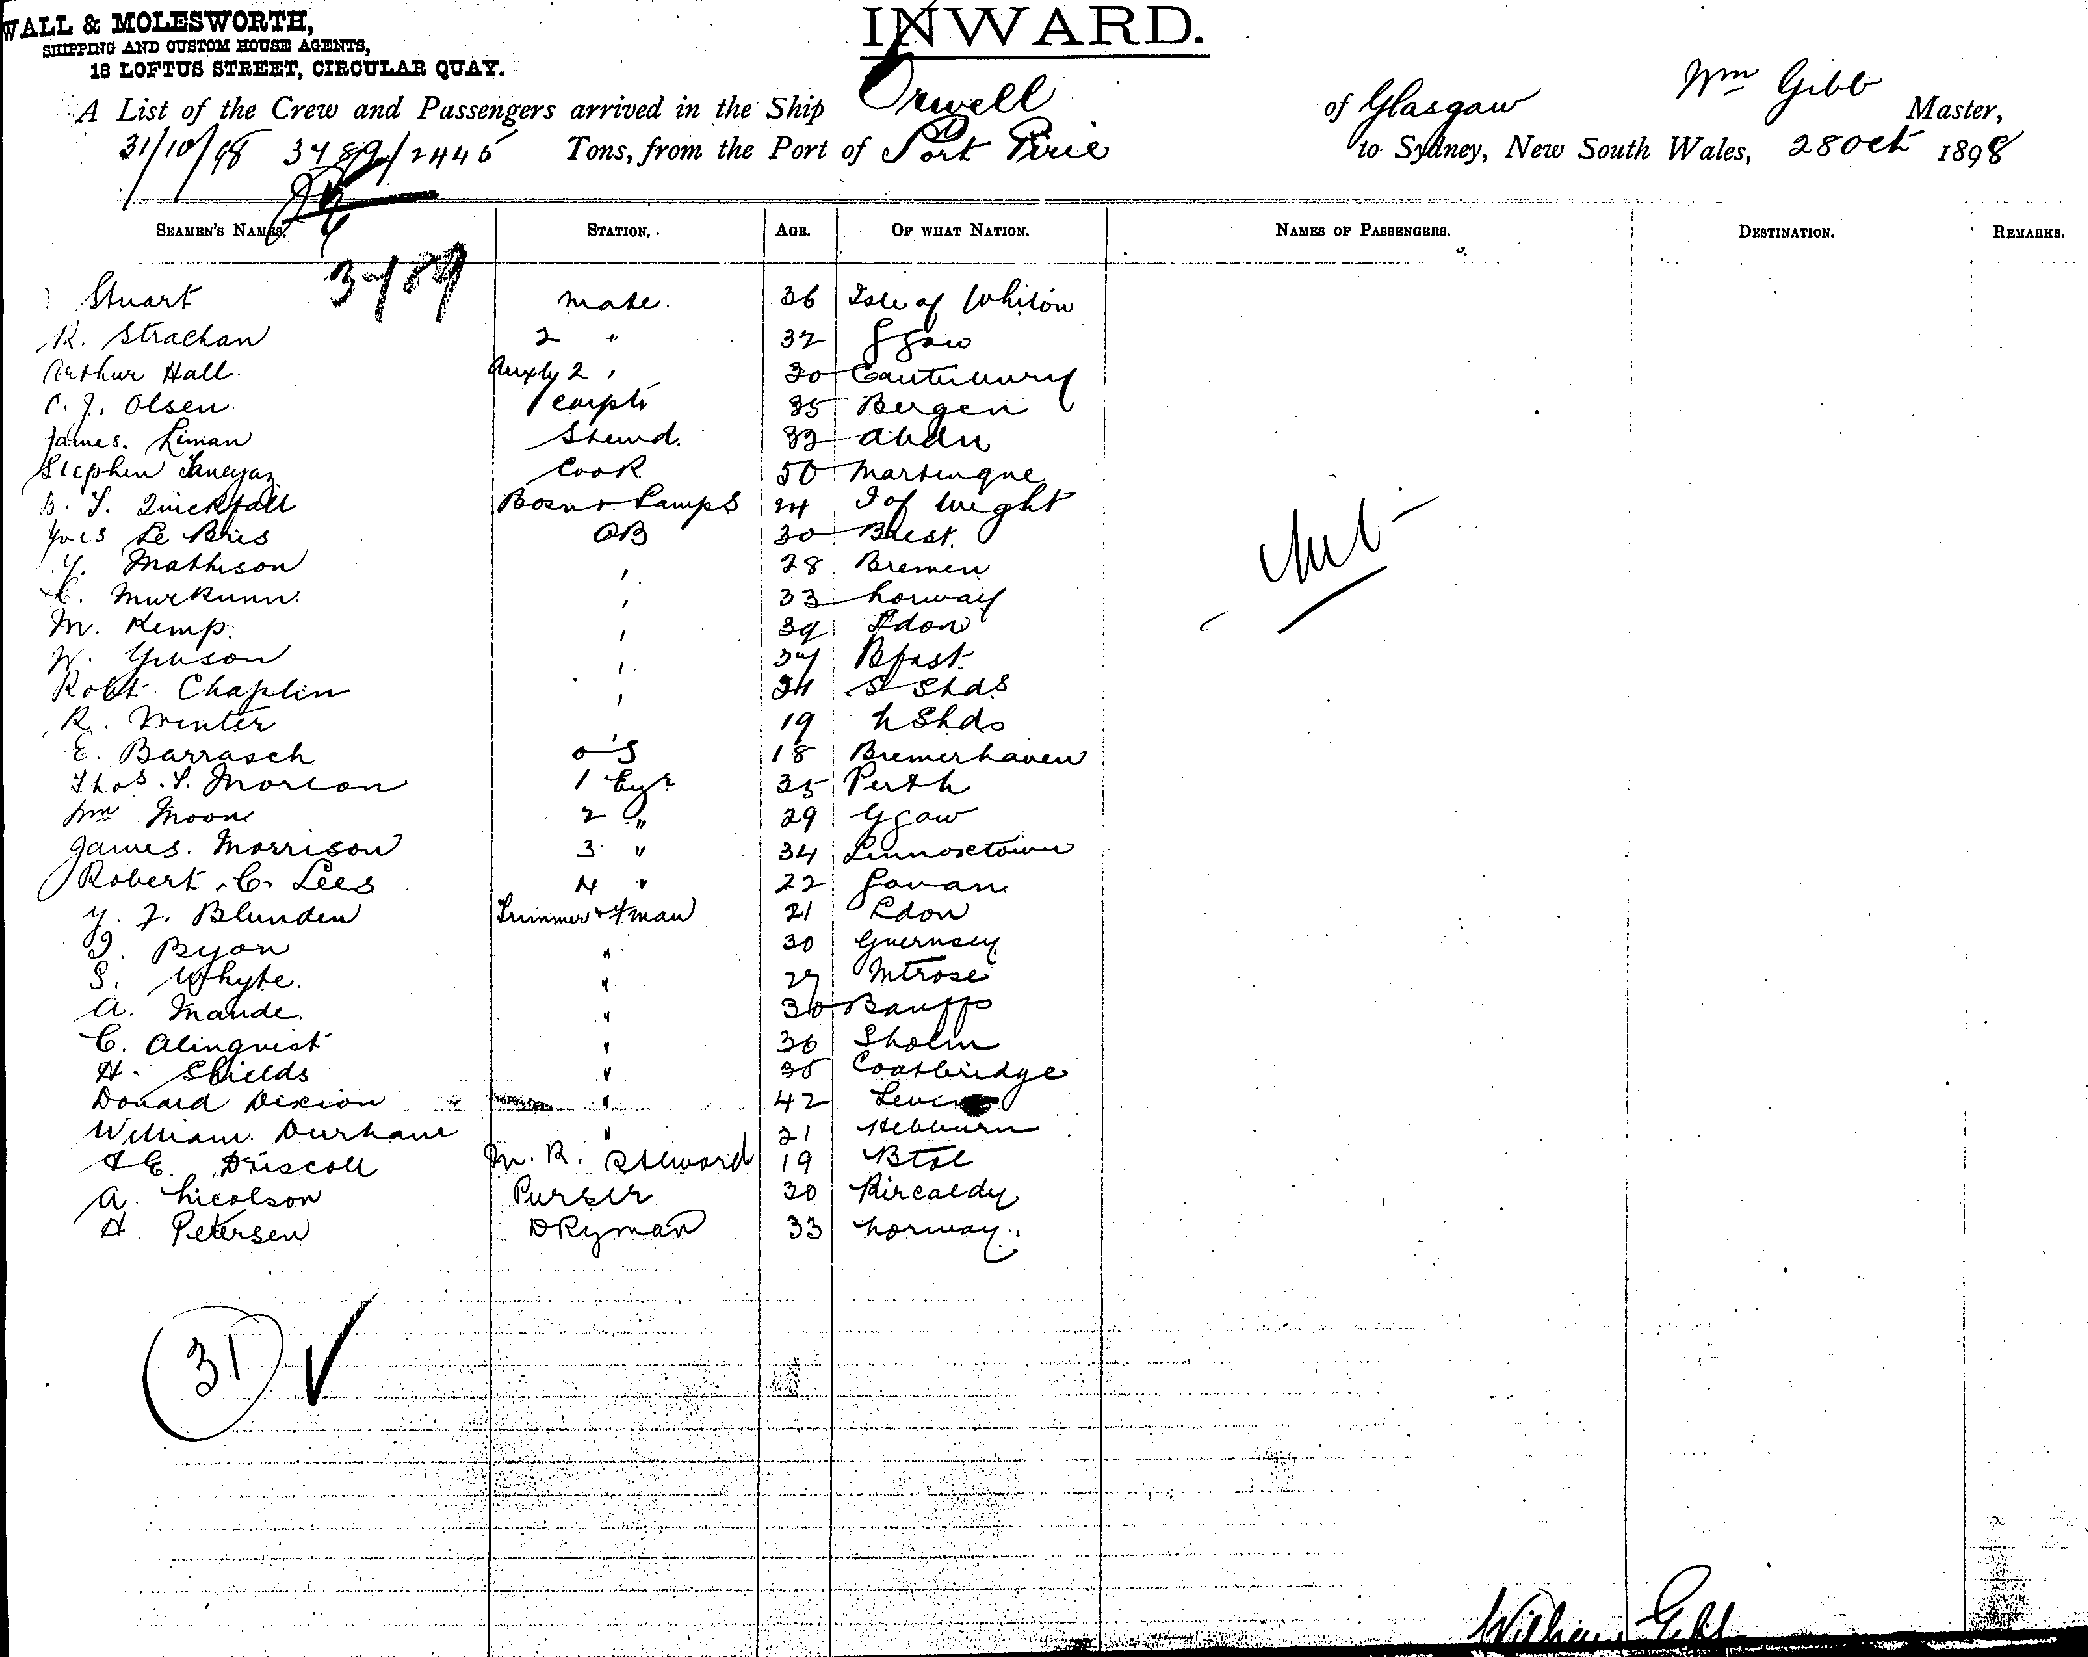 WALL & MOLESWORTH,
SHIPPING AND CUSTOM HOUSE AGENTS,
18 LOFTUS STREET, CIRCULAR QUAY.
INWARD.
A List of the Crew and Passengers arrived in the Ship Orwell of Glasgow Wm Gibb Master,
31/10/98 3789/2445 Tons, from the Port of Port Pirie to Sydney, New South Wales, 28 Oct 1898
SEAMEN'S NAMES. STATION. AGE. OF WHAT NATION. NAMES OF PASSENGERS. DESTINATION. REMARKS.
3789
Stuart mate. 36 Isle of
R. Strachan 2 " 32 Ggow
Arthur Hall Auxly 2 " 30 Canterbury
C. J. Olsen carptr 35 Bergen
James. Liman Stewd. 33 Abdn
Stephen Cook 50 Martinque
B. T. Quickfall Bosn + Lamps 24 I of Wight
Yves Le Bris AB 30 Brest.
Y. Mathison " 28 Bremen
C. " 33 Norway
M. Kemp. " 39 Ldon
W. Gibson " 37 Bfast.
Robt Chaplin " 24 S Shds
R. Winter " 19 N Shds
E. Barrasch O S 18 Bremerhaven
Thos. S. Morton 1 Engr 35 Perth
Wm Moon 2 " 29 Ggow
James. Morrison 3 " 34 Lennoxtown
Robert. C. Lees 4 " 22 Govan
Y. J. Blunden Trimmer & Fman 21 Ldon
J. Byon " 30 Guernsey
S. Whyte. " 27 Mtrose
A. Maude. " 30 Banff
C. Almqvist " 36 Sholm
H. Shields " 35 Coatbridge
Donald " 42 Leven
William Durham " 21 Hebburn
H E. Driscoll M. R. Steward 19 Btol
A. Nicolson Purser 30 Kircaldy
H Petersen DKyman 33 Norway.
Nil
31
William Gibb